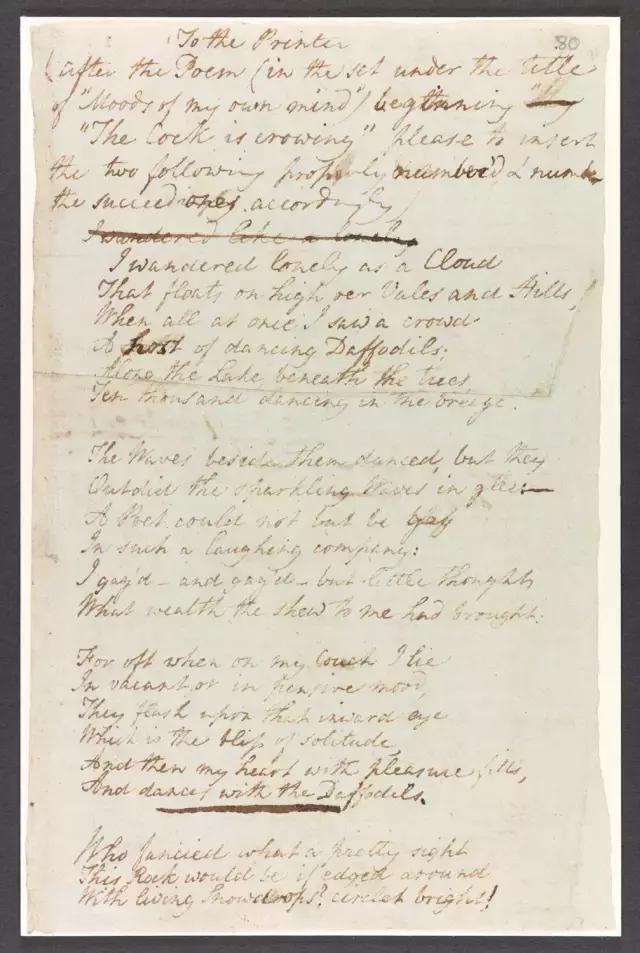 80
To the Printer
(after the Poem (in the set under the title
of "Moods of my own mind") beginning
"The Cock is crowing" please to insert
the two following properly number'd & numb
the succeeding ones accordingly
I wandered like a lonely
I wandered lonely as a Cloud
That floats on high oer Vales and Hills,
When all at once I saw a crowd
A host of dancing Daffodils;
Along the Lake, beneath the trees,
Ten thousand dancing in the breeze.
The Waves beside them danced, but they
Outdid the sparkling Waves in glee:—
A Poet could not but be gay
In such a laughing company:
I gaz'd – and gaz'd – but little thought
What wealth the shew to me had brought:
For oft when on my Couch I lie
In vacant, or in pensive mood,
They flash upon that inward eye
Which is the bliss of solitude,
And then my heart with pleasure fills,
And dances with the Daffodils.
Who fancied what a pretty sight
This Rock would be if edged around
With living Snowdrops? circlet bright!